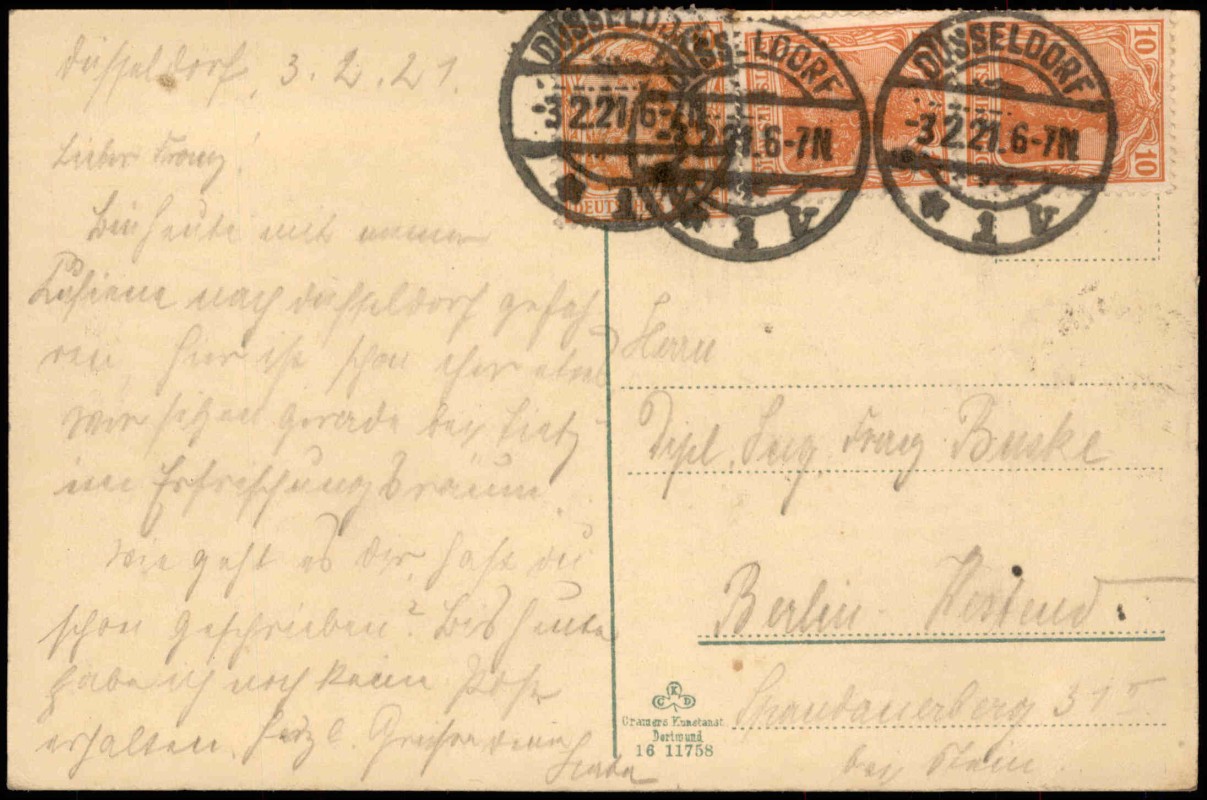 Düsseldorf, 3.2.21.
Lieber Franz!
Bin heute mit meiner
nach Düsseldorf gefah-
ren, hier ist schon eher etwas
Wir sitzen gerade bei Tietz
im Erfrischungsraum.
Wie geht es dir, hast du
schon geschrieben? Bis heute
habe ich noch keine Post
erhalten. Herzl. Grüße deine
DÜSSELDORF
-3.2.21.6-7N
* 1
DEUTSCHES
DÜSSELDORF
-3.2.21.6-7N
* 1 V
DÜSSELDORF
-3.2.21.6-7N
* 1 V
10
10
Herrn
Dipl. Ing. Franz Buske
Berlin-Westend.
Spandauerberg 3 II
bei Stein.
CKD
Cramers Kunstanst.
Dortmund
16 11758